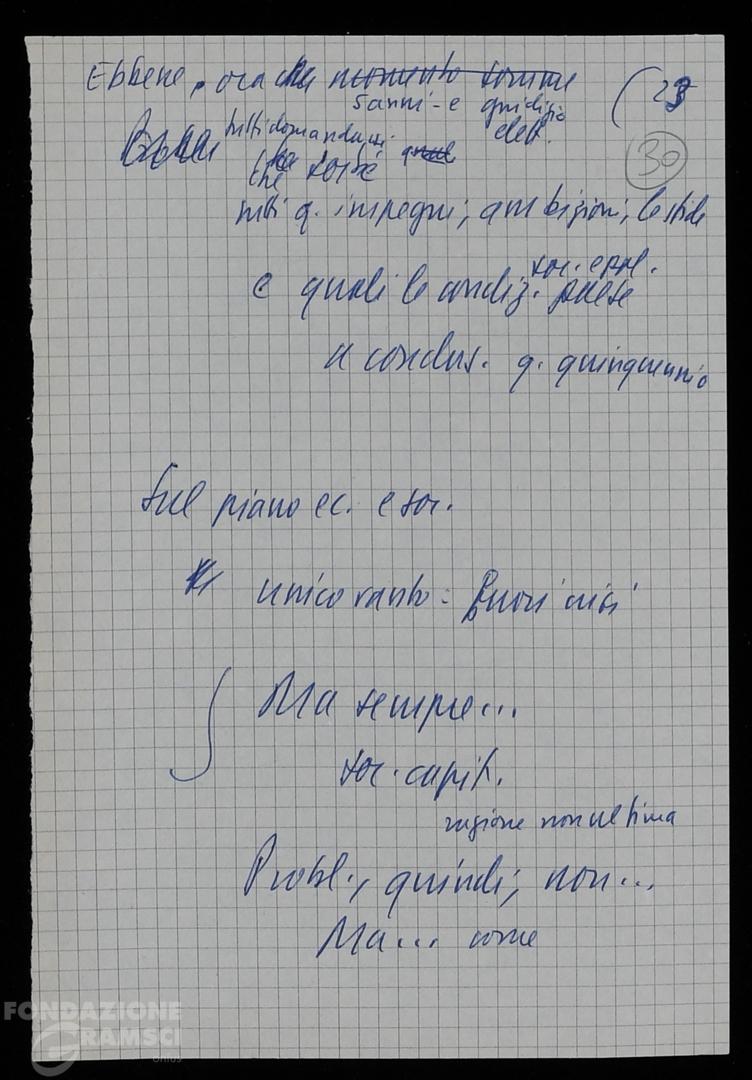 Ebbene, ora che momento somme
5 anni - e giudizio
elett.
(23
30
tutti domandarsi
che
tutti q. impegni, ambizioni, le sfide
e quali le condiz. soc. e pol. paese
a conclus. q. quinquennio
Sul piano ec. e soc.
unico vanto: fuori crisi
Ma sempre...
soc. capit.
ragione non ultima
Probl., quindi, non...
Ma... come
FONDAZIONE
GRAMSCI
onlus